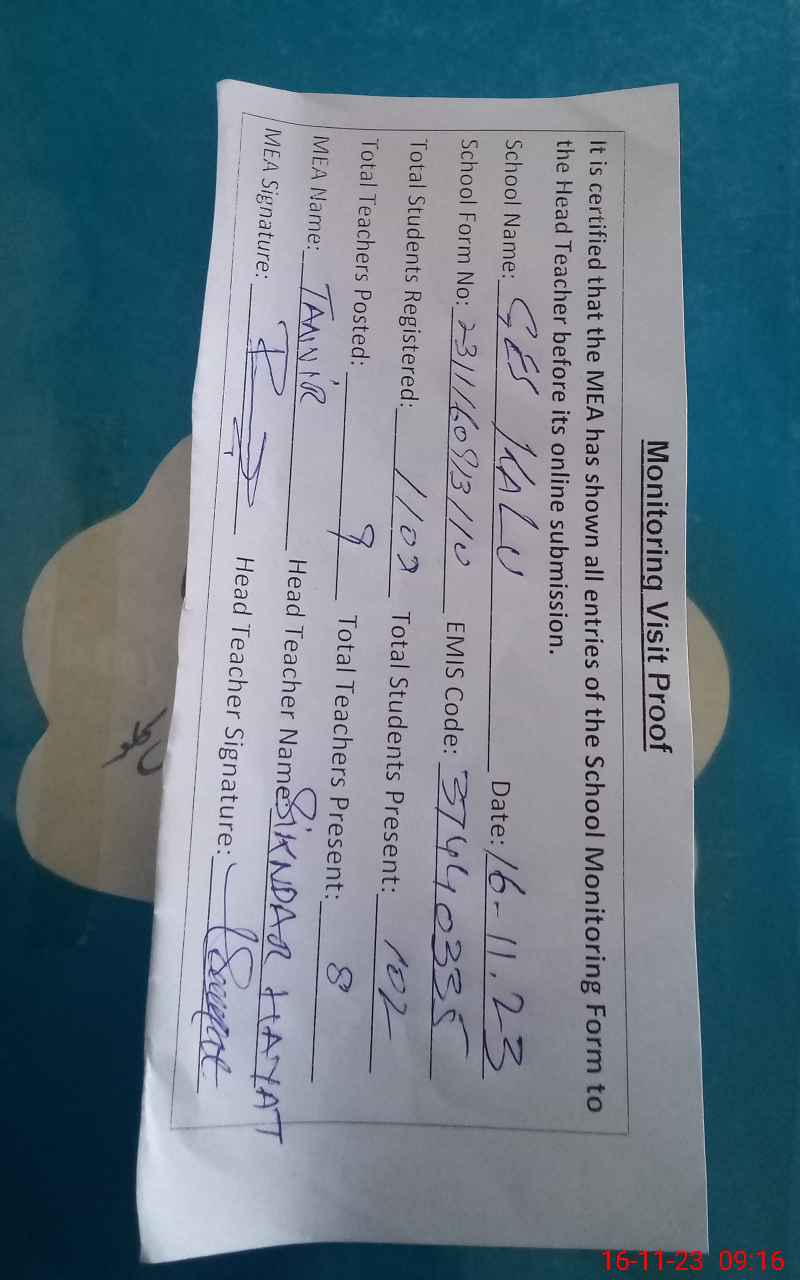 Monitoring Visit Proof
It is certified that the MEA has shown all entries of the School Monitoring Form to
the Head Teacher before its online submission.
School Name: GES KALU Date: 16-11.23
School Form No: EMIS Code: 37440335
Total Students Registered: Total Students Present: 102
Total Teachers Posted: 9 Total Teachers Present: 8
MEA Name: Head Teacher Name: SIKNDAR HAYAT
MEA Signature: Head Teacher Signature:
16-11-23 09:16